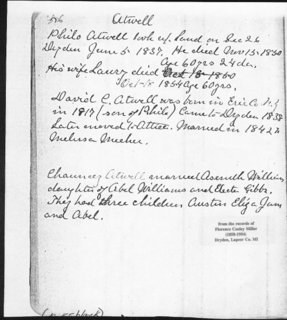 Atwell
Philo Atwell 1wh. of Land on Sec 26
Dryden June 5- 1837. He died Nov 13-1850
Age 60 yrs 24 da.
His wife Laury died Oct 15-1860
Oct-8 1854 Age 60 yrs.
David C. Atwell was born in Erie Co. N.Y
in 1817 (son of Philo) Came to Dryden 1838
Later moved to Attica. Married in 1842
Melissa
Chauncy Atwell married Asenath Williams,
daughter of Abel Williams and Gibbs.
They had three children, Austin Eliza Jane
and Abel.
from the records of
Florence Conley Miller
Dryden, Lapeer Co. MI